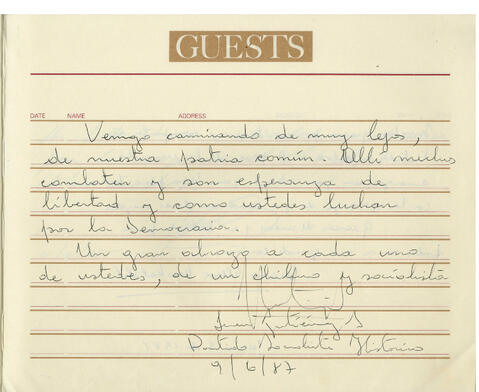 GUESTS
DATE NAME ADDRESS
Vengo caminando de muy lejos,
de nuestra patria común. Allí muchos
combaten y son esperanza de
libertad y como ustedes luchan
por la Democracia.
Un gran abrazo a cada uno
de ustedes, de un chileno y socialista
Juan Gutiérrez S
Partido Socialista Histórico
9/6/87